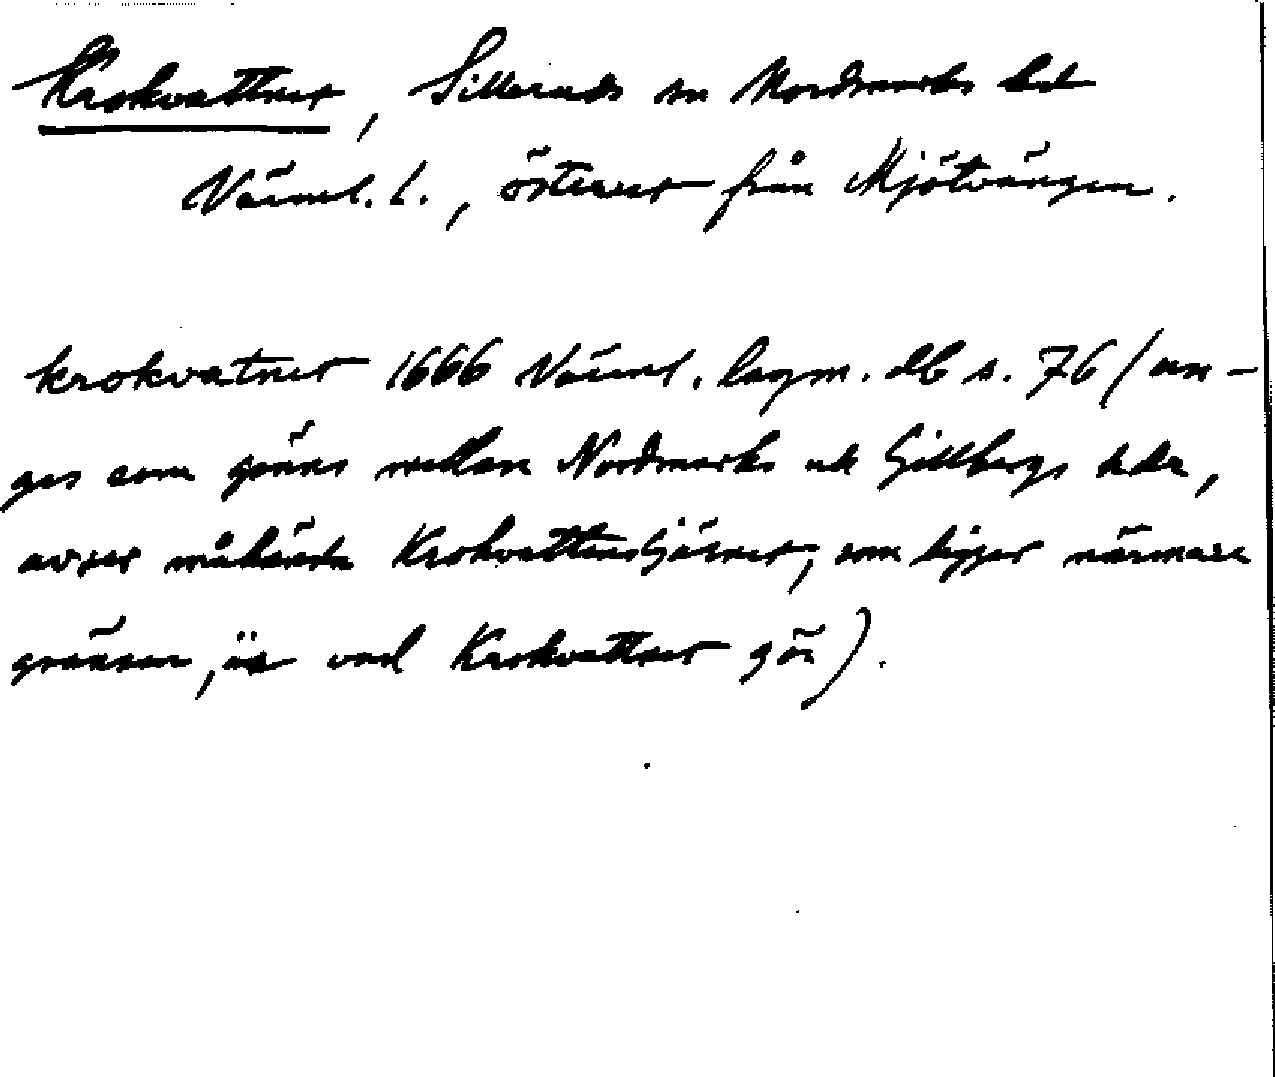 Krokvattnet, Silleruds sn Nordmarks hd
Värml. l., österut från Mjötvängen.
krokvatnet 1666 Värml. lagm. db s. 76 (an-
ges som gräns mellan Nordmarks och Gillbergs hder,
avser måhända Krokvattenstjärnet, som ligger närmare
gränsen, än vad Krokvattnet gör).